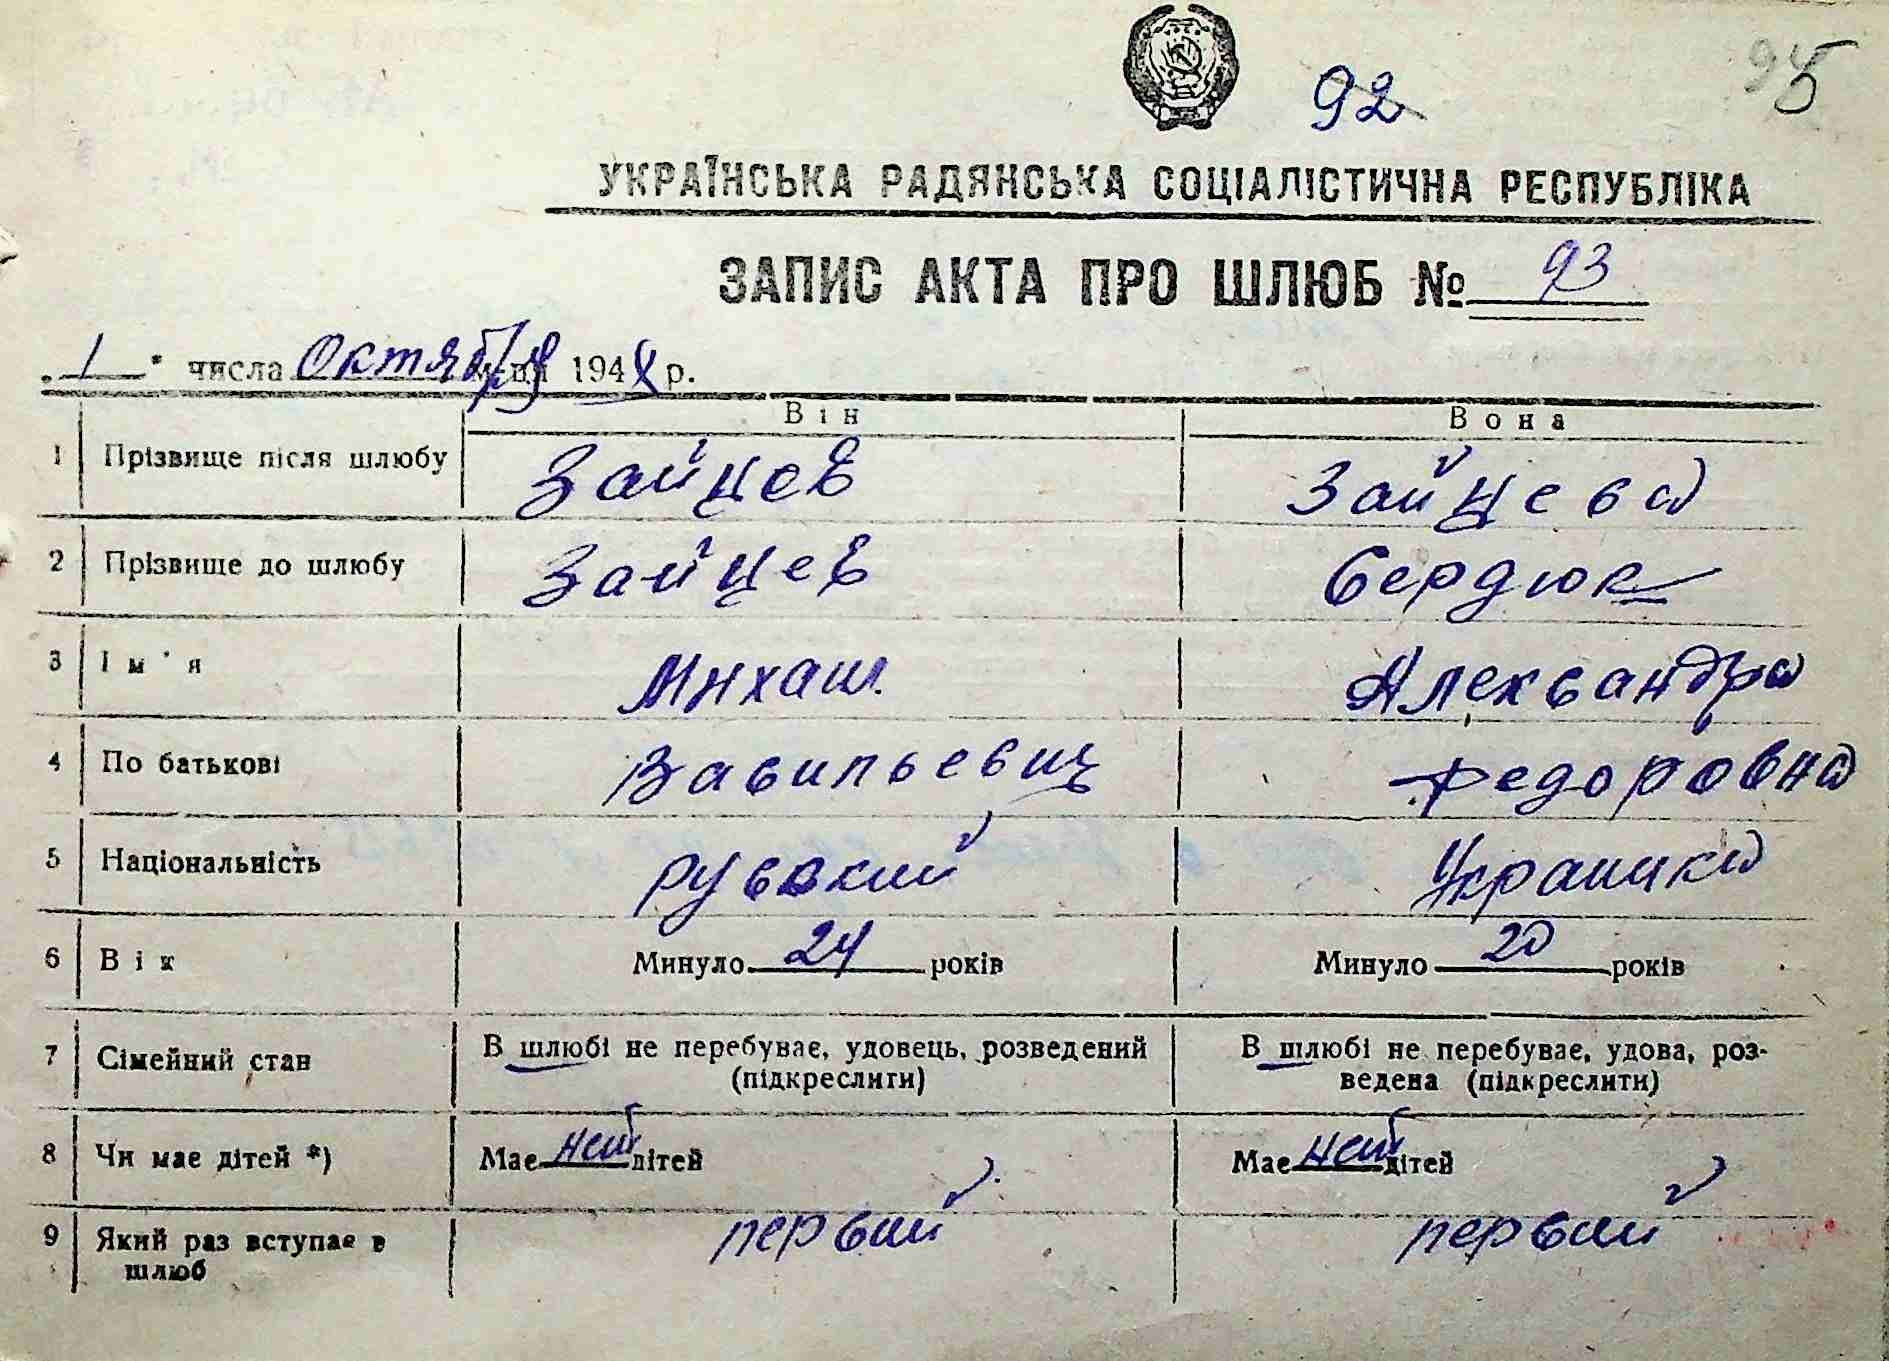 92
95
УКРАЇНСЬКА РАДЯНСЬКА СОЦІАЛІСТИЧНА РЕСПУБЛІКА
ЗАПИС АКТА ПРО ШЛЮБ № 93
„1" числа Октября м-ця 194 р.
Він Вона
1 Прізвище після шлюбу Зайцев Зайцева
2 Прізвище до шлюбу Зайцев Сердюк
3 Ім'я Михаил Александра
4 По батькові Васильевич Федоровна
5 Національність русский Украинка
6 Вік Минуло 24 років Минуло 20 років
7 Сімейний стан В шлюбі не перебуває, удовець, розведений В шлюбі не перебуває, удова, роз-
(підкреслити) ведена (підкреслити)
8 Чи має дітей *) Має нет дітей Має нет дітей
9 Який раз вступає в первый первый
шлюб